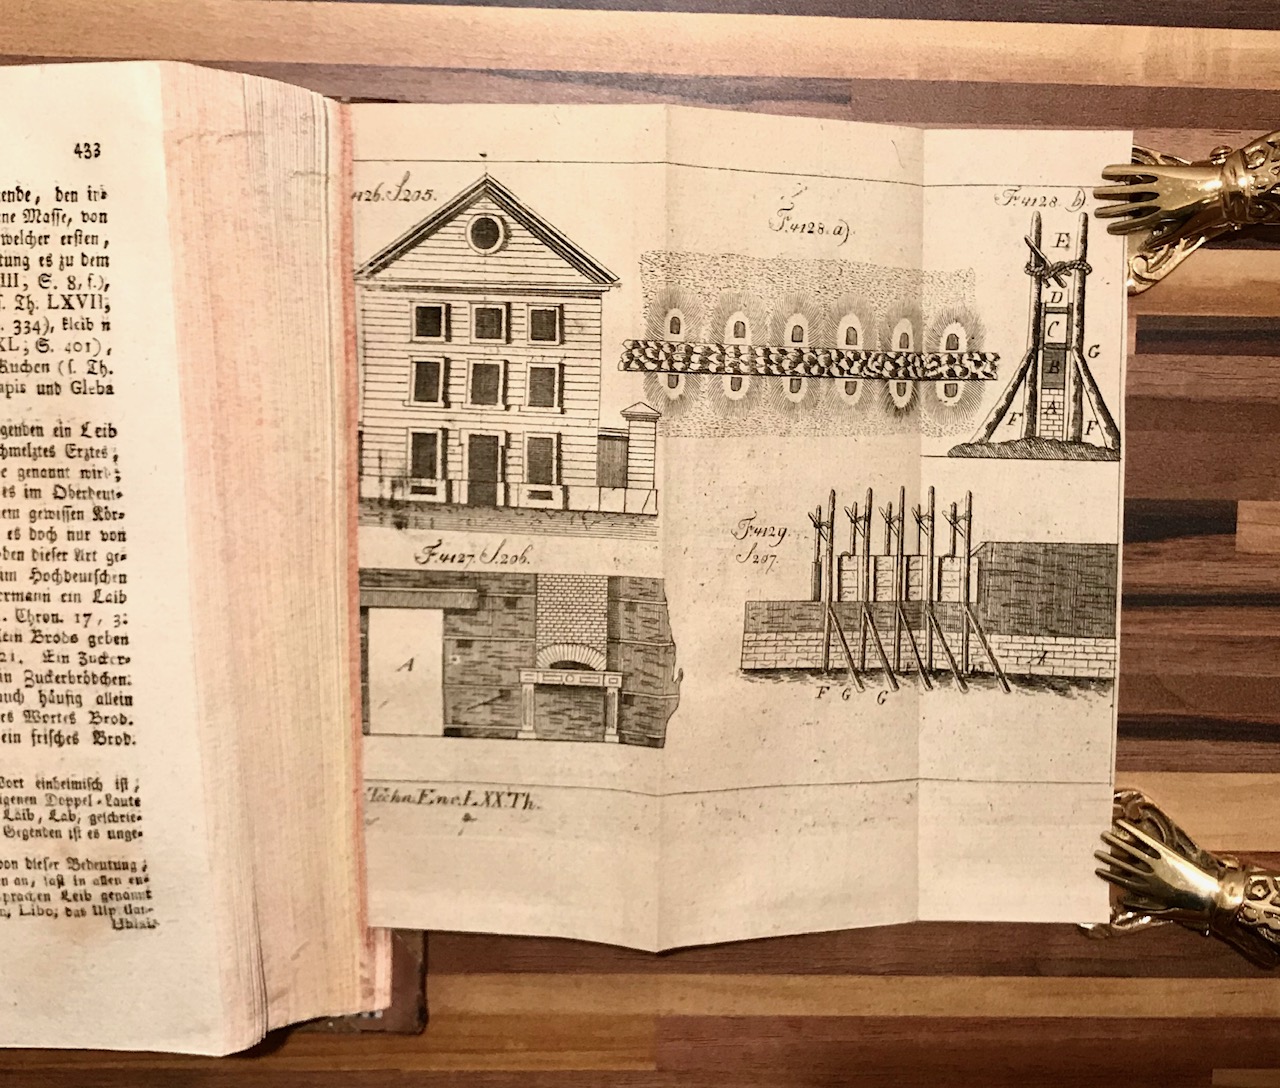 433
ende, den ir⸗
ne Maſſe, von
welcher erſten,
tung es zu dem
III; S. 8, f.),
ſ. Th. LXVII;
. 334), kleib n
XL; S. 401),
Kuchen (ſ. Th.
apis und Gleba
genden ein Leib
chmelztes Erztes;
e genannt wird;
es im Oberdeut⸗
nem gewiſſen Kör⸗
es doch nur von
ben dieſer Art ge⸗
im Hochdeutſchen
ermann ein Laib
. Chron. 17, 3:
ein Brods geben
21. Ein Zucker⸗
in Zuckerbrödchen.
auch häufig allein
es Wortes Brod.
ein friſches Brod.
Wort einheimiſch iſt;
igenen Doppel⸗Laute
Läib, Lab, geſchrie⸗
Gegenden iſt es unge⸗
von dieſer Bedeutung;
n an, faſt in allen eu⸗
prachen Leib genannt
n, Libo; das
4126. S. 205.
F. 4128. a).
F. 4128. b).
E
D
C
G
B
A
F
F
F. 4127. S. 206.
A
F. 4129.
S. 207.
A
F G G
Techn. Enc. LXX. Th.